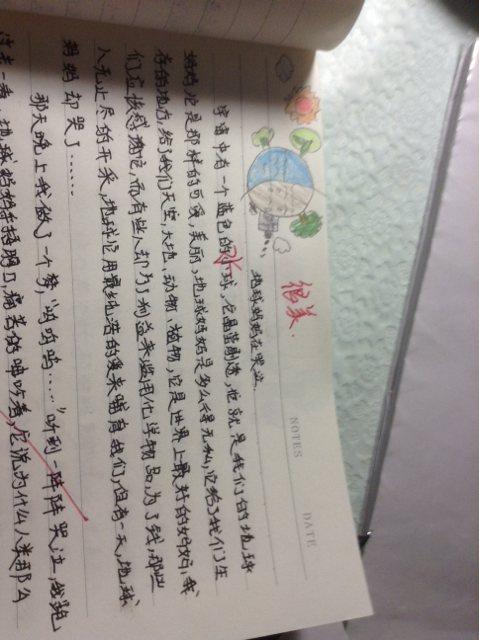 很美.
NOTES
DATE
地球妈妈在哭泣
宇宙中有一个蓝色的水球,它晶莹剔透,也就是我们的地球
妈妈,它是那样的可爱,美丽,地球妈妈是多么得无私,它给了我们生
存的地方,给了我们天空,大地、动物、植物,它是世界上最好的妈妈,我
们应该感谢它,而有些人却为了利益来滥用化学物品,为了钱,那些
人无止尽的开采,地球妈用最纯洁的爱来哺育我们,但有一天,地球、
妈妈却哭了……
那天晚上我做了一个梦,“呜呜呜……”听到一阵阵哭泣,我跑
过去一看,地球妈妈在捂胸口,痛苦的呻吟着,它说为什么人类那么